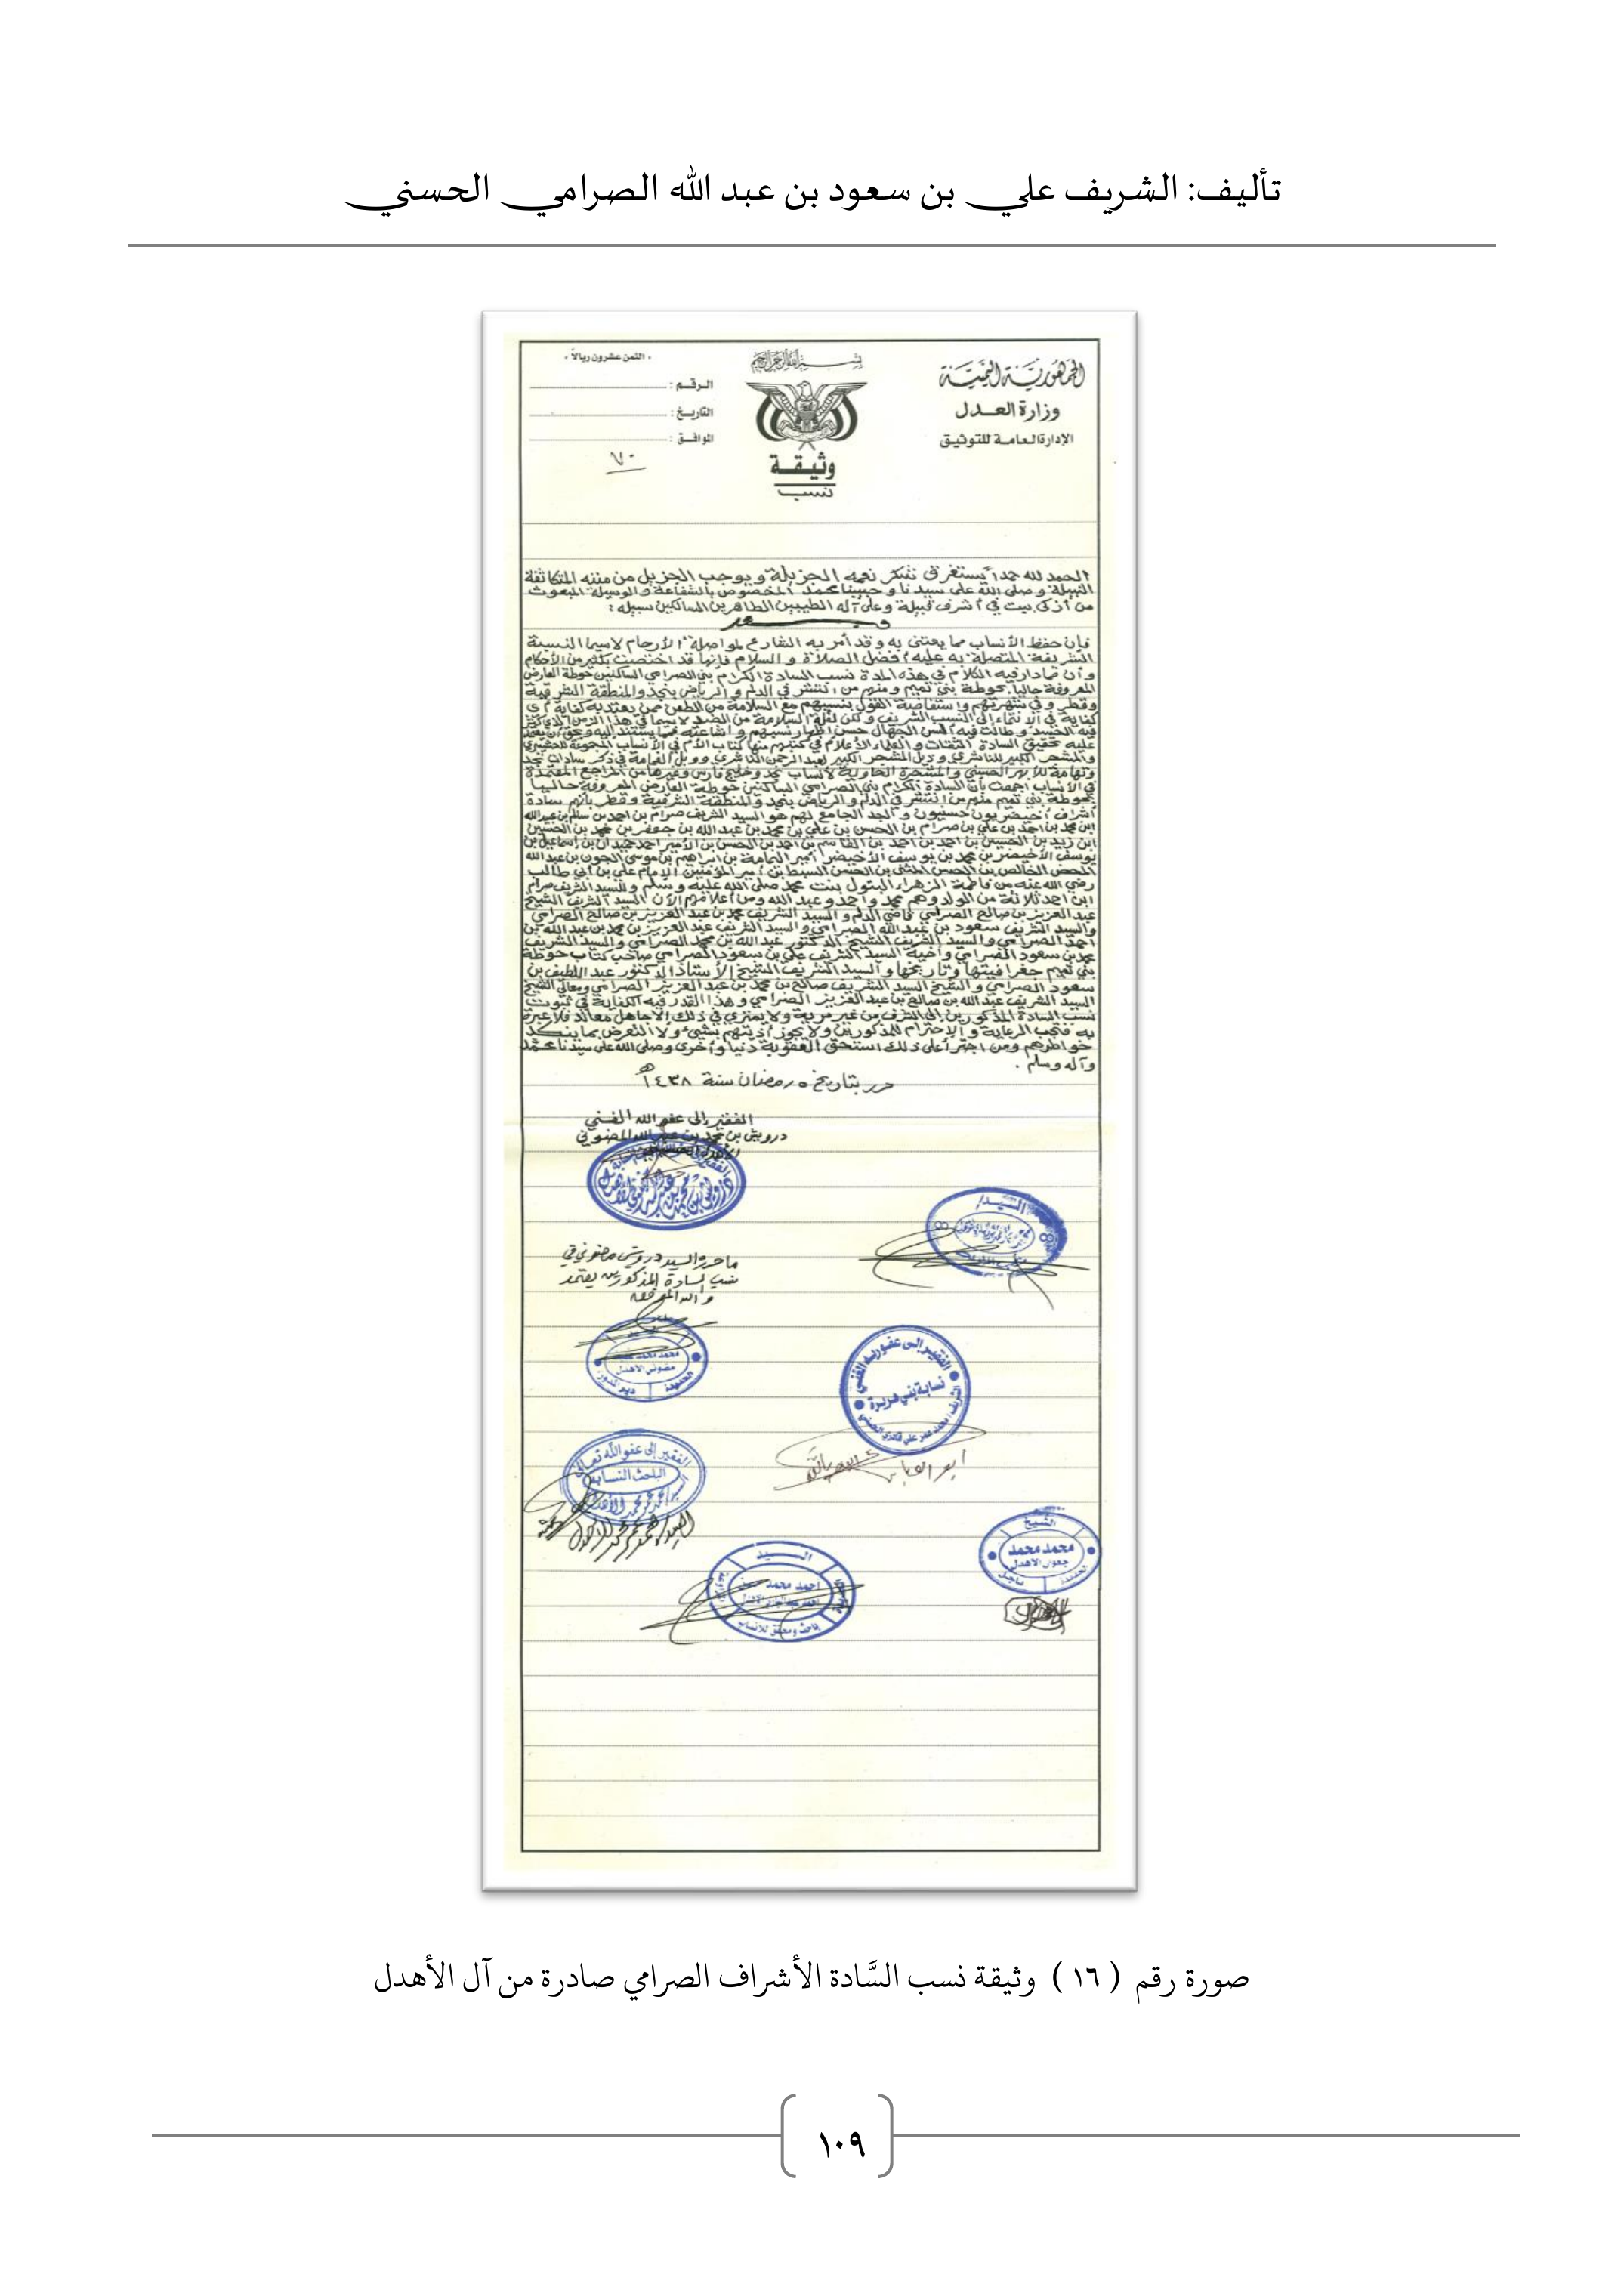 تأليف: الشريف علي بن سعود بن عبد الله الصرامي الحسني
الجمهورية اليمنية
وزارة العدل
الإدارة العامة للتوثيق
بسم الله الرحمن الرحيم
وثيقة
نسب
- الثمن عشرون ريالاً -
الرقم :
التاريخ :
الموافق :
٧٠
الحمد لله حمداً يستغرق شكر نعمه الجزيلة ويوجب الجزيل من مننه المتكاثفة
النبيلة وصلى الله على سيدنا وحبيبنا محمد المخصوص بالشفاعة والوسيلة المبعوث
من أزكى بيت في أشرف قبيلة وعلى آله الطيبين الطاهرين السالكين سبيله :
وبعد
فإن حفظ الأنساب مما يعتنى به وقد أمر به الشارع لمواصلة الأرحام لاسيما النسبة
الشريفة المتصلة به عليه أفضل الصلاة و السلام فإنها قد اختصت بكثير من الأحكام
وأن مما دار فيه الكلام في هذه المدة نسب السادة الكرام بني الصرامي الساكنين حوطة العارض
المعروفة حالياً بحوطة بني تميم ومنهم من انتشر في الدلم و الرياض بنجد والمنطقة الشرقية
وقطر وفي شهرتهم واستفاضة القول بنسبهم مع السلامة من الطعن ممن يعتد به كفاية أي
كفاية في الانتماء إلى النسب الشريف ولكن لقلة السلامة من الضد لاسيما في هذا الزمن الذي كثر
فيه الحسد وطالت فيه ألسن الجهال حسن إظهار نسبهم وإشاعته
عليه تحقيق السادة الثقات و العلماء الأعلام في كتبهم منها كتاب الأم في الأنساب
والمشجر الكبير للناشري وذيل المشجر الكبير لعبد الرحمن الناشري ووبل الغمامة في ذكر سادات نجد
وتهامة للأبهر الحسني والمشجرة الحاوية لأنساب نجد وخليج فارس وغيرها من المراجع المعتمدة
في الأنساب أجمعت بأن السادة الكرام بني الصرامي الساكنين حوطة العارض المعروفة حالياً
بحوطة بني تميم منهم من انتشر في الدلم و الرياض بنجد والمنطقة الشرقية وقطر بأنهم سادة
أشراف أخيضريون حسنيون و الجد الجامع لهم هو السيد الشريف صرام بن احمد بن سالم بن عبد الله
ابن محمد بن احمد بن علي بن صرام بن الحسن بن علي بن محمد بن عبد الله بن جعفر بن محمد بن الحسين
ابن زيد بن الحسين بن احمد بن احمد بن القاسم بن احمد بن الحسن بن الأمير احمد حميدان بن إسماعيل بن
يوسف الأخيضر بن محمد بن يوسف الأخيضر أمير اليمامة بن ابراهيم بن موسى الجون بن عبد الله
المحض الخالص بن الحسن المثنى بن الحسن السبط بن أمير المؤمنين الإمام علي بن أبي طالب
رضي الله عنه من فاطمة الزهراء البتول بنت محمد صلى الله عليه وسلم وللسيد الشريف صرام
ابن احمد ثلاثة من الولد وهم محمد و احمد و عبد الله ومن أعلامهم الآن السيد الشريف الشيخ
عبد العزيز بن صالح الصرامي قاضي الدلم و السيد الشريف محمد بن عبد العزيز بن صالح الصرامي
والسيد الشريف سعود بن عبد الله الصرامي و السيد الشريف عبد العزيز بن محمد بن عبد الله بن
احمد الصرامي والسيد الشريف الشيخ الدكتور عبد الله بن محمد الصرامي والسيد الشريف
محمد بن سعود الصرامي وأخيه السيد الشريف علي بن سعود الصرامي صاحب كتاب حوطة
بني تميم جغرافيتها وتاريخها والسيد الشريف الشيخ الأستاذ الدكتور عبد اللطيف بن
سعود الصرامي و الشيخ السيد الشريف صالح بن محمد بن عبد العزيز الصرامي ومعالي الشيخ
السيد الشريف عبد الله بن صالح بن عبد العزيز الصرامي و هذا القدر فيه الكفاية في ثبوت
نسب السادة المذكورين إلى الشرف من غير مرية ولا يمتري في ذلك إلا جاهل معاند فلا عبرة
به فتجب الرعاية و الاحترام للمذكورين ولا يجوز أذيتهم بشيء ولا التعرض بما ينكد
خواطرهم ومن اجترأ على ذلك استحق العقوبة دنيا وأخرى وصلى الله على سيدنا محمد
وآله وسلم .
حرر بتاريخ ٥ رمضان سنة ١٤٣٨هـ
الفقير إلى عفو الله الغني
درويش بن محمد بن عبد الله المضوني
ما حرره السيد درويش مضوني في
نسب السادة المذكورين يعتمد
والله الموفق
السيد/
محمد محمد
مضوني الاهدل
الحديدة
الفقير إلى عفو ربه الغني
نسابة بني هريرة
الفقير إلى عفو الله تعالى
الباحث النسابة
الشيخ
محمد محمد
جعوان الاهدل
الحديدة
باجل
السيد
احمد محمد
باحث ومحقق للانساب
صورة رقم ( ١٦ ) وثيقة نسب السَّادة الأشراف الصرامي صادرة من آل الأهدل
١٠٩